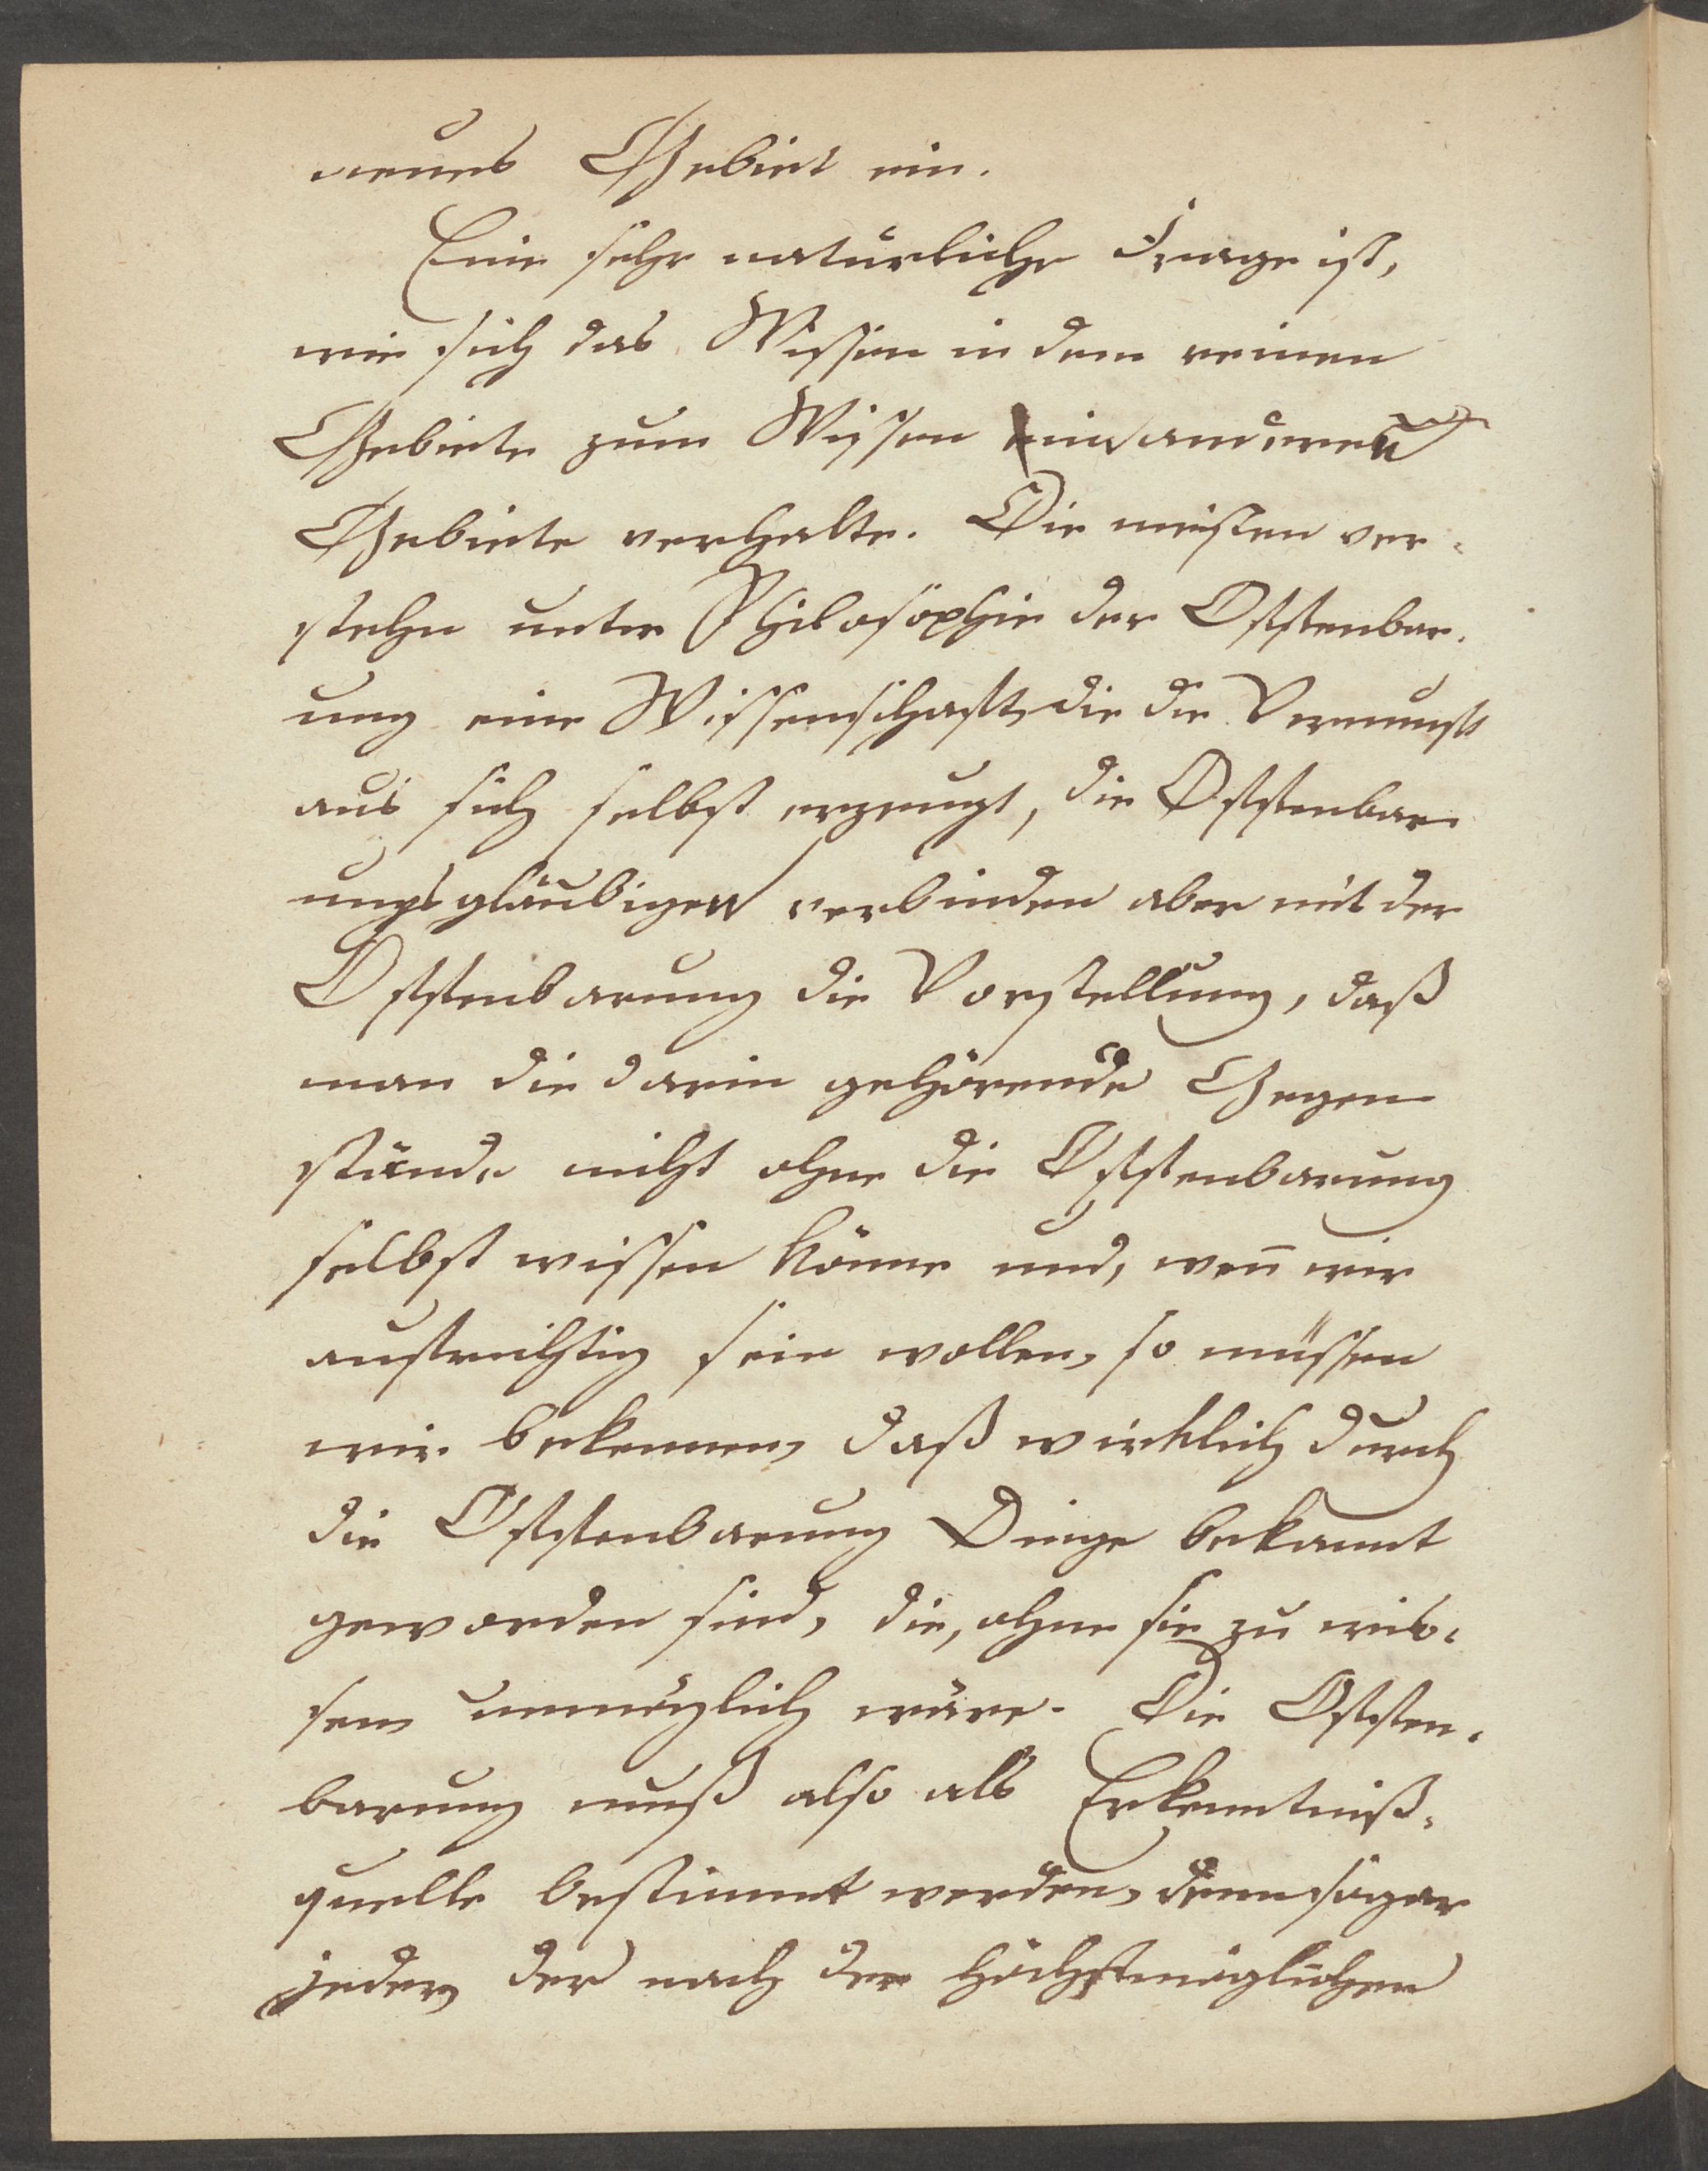 neues Gebiet ein.
Eine sehr natürliche Frage ist,
wie sich das Wissen in dem reinen
Gebiete zum Wissen im anderen
Gebiete verhalte. Die meisten ver-
stehn unter Philosophie der Offenbar-
ung eine Wissenschaft, die die Vernunft
aus sich selbst erzeugt, die Offenbar-
ungsgläubigen verbinden aber mit der
Offenbarung die Vorstellung, daß
man die darin gehörende Gegen-
stände nicht ohne die Offenbarung
selbst wissen könne und, wen̄ wir
aufrichtig sein wollen, so müssen
wir bekennen, daß wirklich durch
die Offenbarung Dinge bekannt
geworden sind, die, ohne sie zu wis-
sen unmöglich wäre. Die Offen-
barung muß also als Erkenntniß-
quelle bestimmt werden, denn sogar
jeder, der nach der höchstmöglichen